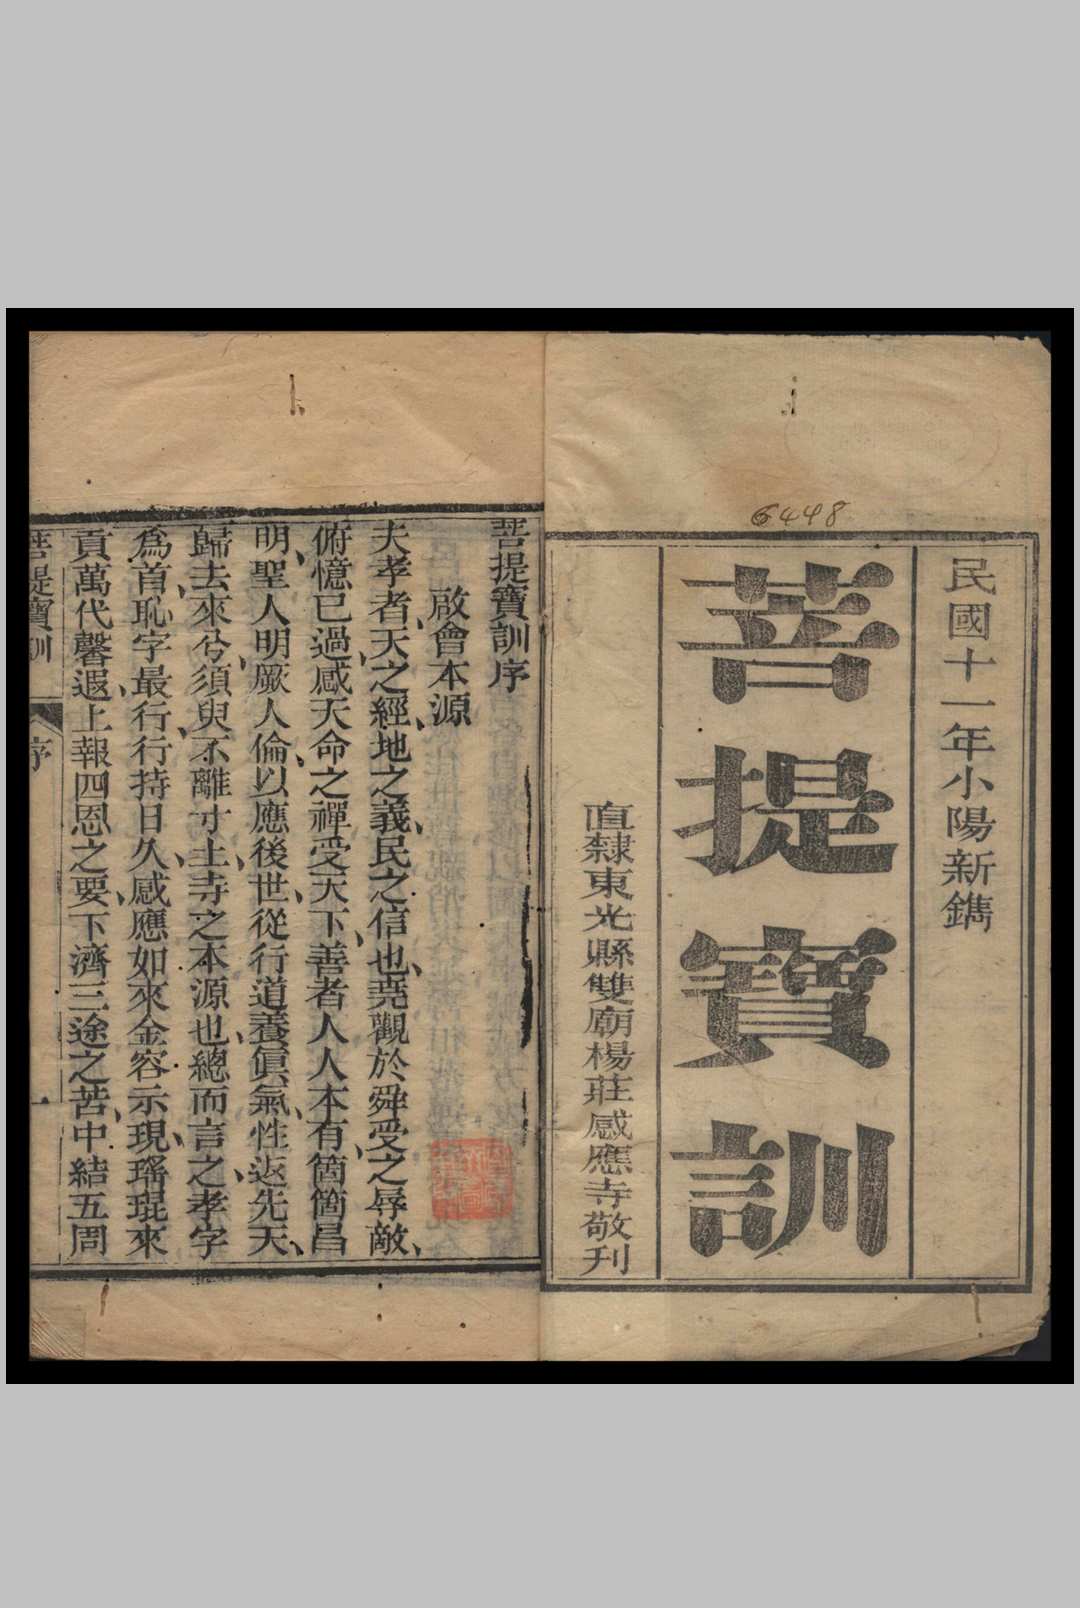 6448
民國十一年小陽新鐫
菩提寶訓
直隸東光縣雙廟楊莊感應寺敬刋
菩提寶訓序
啟會本源
夫孝者、天之經、地之義、民之信也、堯觀於舜受之辱敵、
俯憶已過、感天命之禪受、天下、善者人人本有、箇箇昌
明、聖人明厥人倫、以應後世、從行道養眞氣、性返先天、
歸去來兮、須臾不離寸土、寺之本源也、總而言之、孝字
爲首、恥字最行、行持日久、感應如來金容示現、瑤琨來
貢、萬代馨遐、上報四恩之要、下濟三途之苦、中結五周
菩提寶訓
序
一